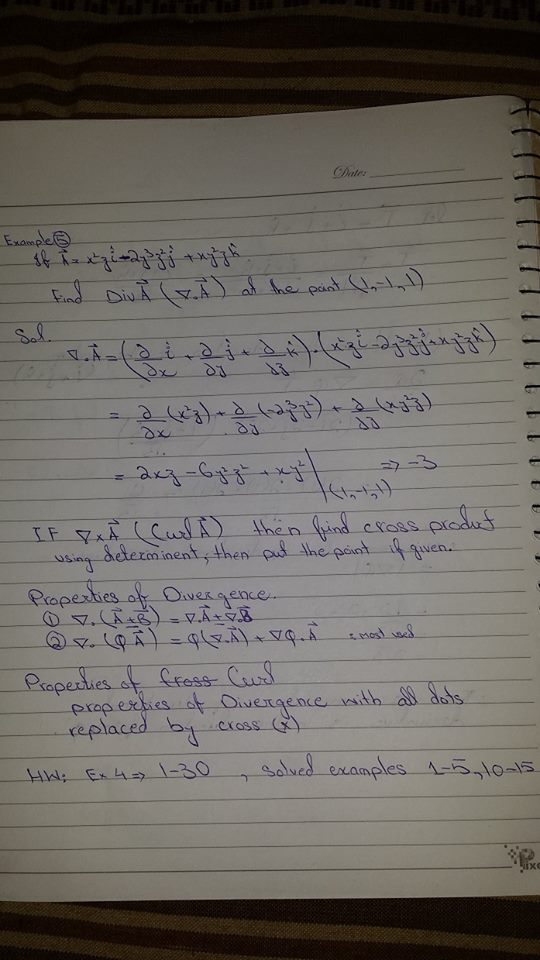 Date:
Example ⑤
If A⃗ = x²z î - 2y³z² ĵ + xy²z k̂
Find Div A⃗ (∇.A⃗) at the point (1,-1,1)
Sol.
∇.A⃗ = (∂/∂x î + ∂/∂y ĵ + ∂/∂z k̂) . (x²z î - 2y³z² ĵ + xy²z k̂)
= ∂/∂x (x²z) + ∂/∂y (-2y³z²) + ∂/∂z (xy²z)
= 2xz - 6y²z² + xy² |(1,-1,1) => -3
IF ∇×A⃗ (Curl A⃗) then find cross product
using determinent, then put the point if given.
Properties of Divergence.
① ∇.(A⃗+B⃗) = ∇.A⃗+∇.B⃗
② ∇.(φA⃗) = φ(∇.A⃗) + ∇φ.A⃗ : most used
Properties of Cross Curl
properties of Divergence with all dots
replaced by cross (x)
HW: Ex 4 => 1-30 , Solved examples 1-5, 10-15